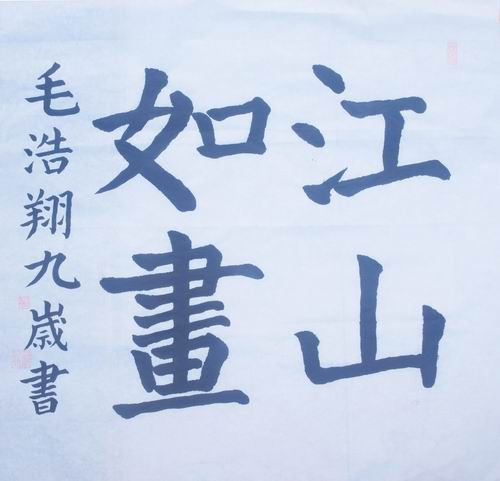 江山
如畫
毛浩翔九歲書